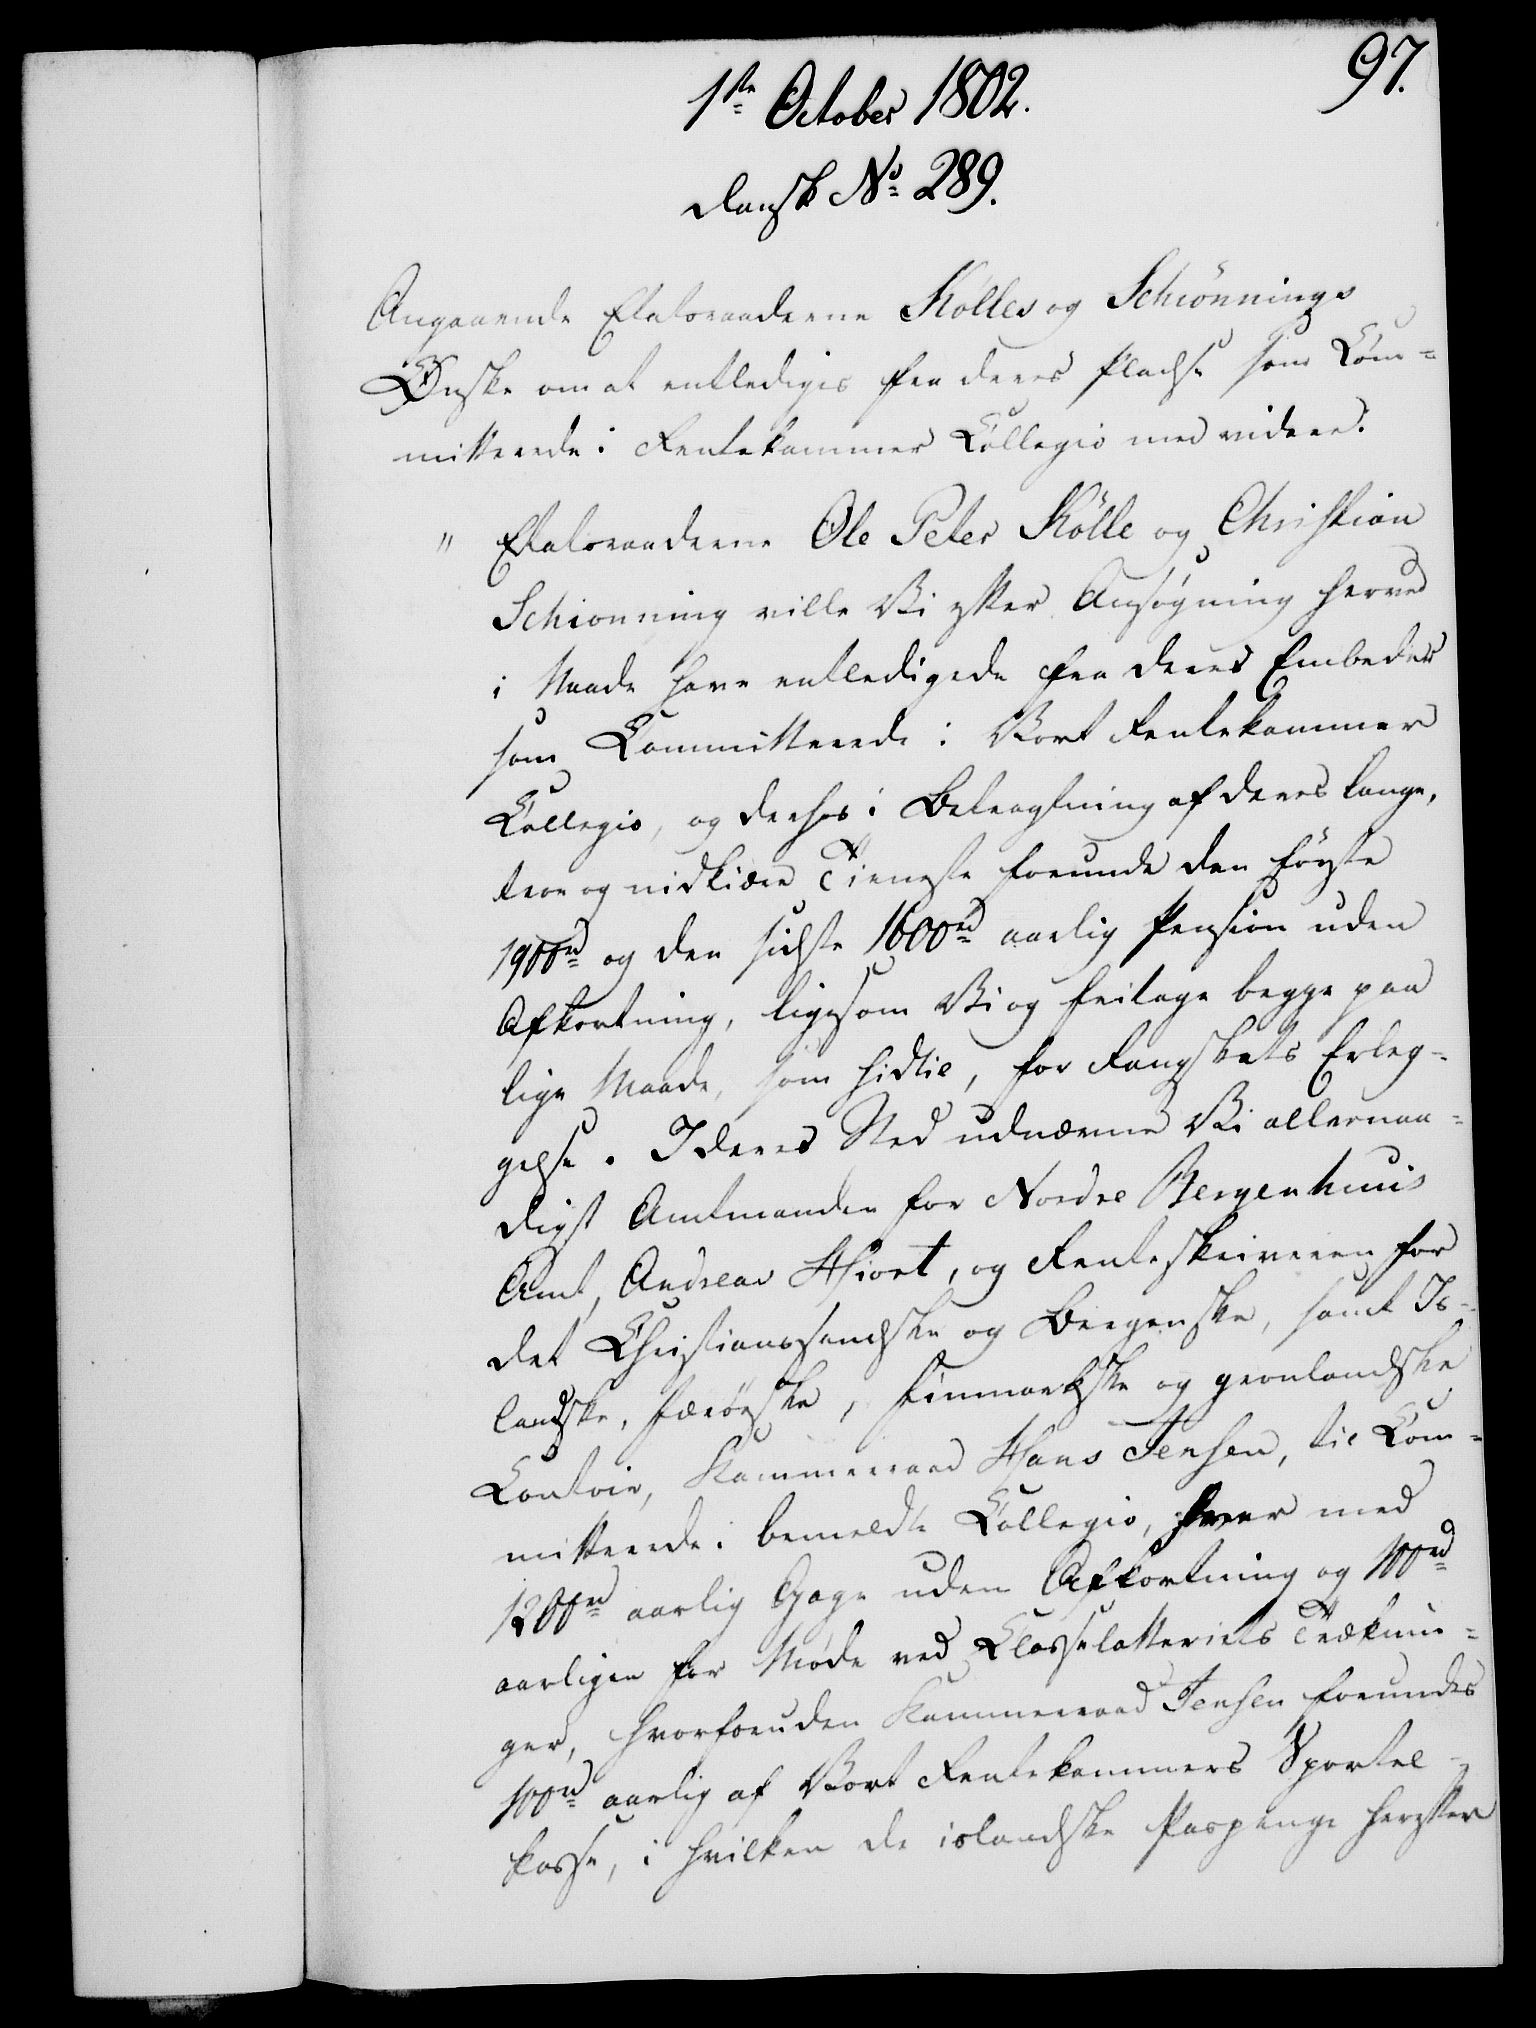 97.
1ste October 1802.
Dansk No 289.
Angaaende Etatsraaderne Kölles og Schiönnings
Ønske om at entlediges fra deres Pladse som Com-
mitterede i Rentekammer Collegio med videre.
" Etatsraaderne Ole Peter Kölle og Christian
Schionning ville Vi efter Ansøgning herved
i Naade have entledigede fra deres Embeder
som Committerede i Vort Rentekammer
Collegio, og derhos i Betragtning af deres lange,
troe og nidkiære Tieneste forunde den første
1900rd og den sidste 1600rd aarlig Pension uden
Afkortning, ligesom Vi og fritage begge paa
lige Maade, som hidtil, for Rangskats Erlæg-
gelse. I deres Sted udnævne Vi allernaa-
digst Amtmanden for Nordre Bergenhuus
Amt, Andreas Hiort, og Renteskriveren for
det Christianssandske og Bergenske, samt Is-
landske, færöeske, finmarkske og grønlandske
Contoir, Kammerraad Hans Jensen, til Com-
mitterede i bemeldte Collegio, hver med
1200rd aarlig Gage uden Afkortning og 100rd
aarligen for Møde ved Classelotteriets Træknin-
ger, hvorforuden Kammerraad Jensen forundes
100rd aarlig af Vort Rentekammers Sportel-
kasse, i hvilken de islandske Paspenge herefter